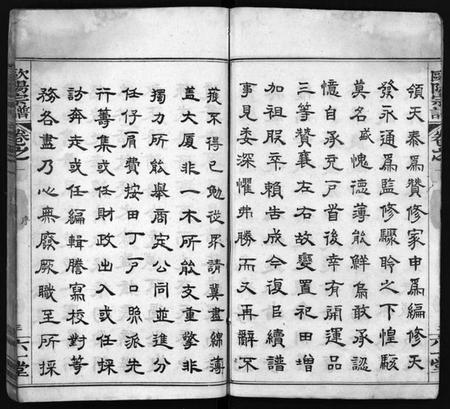 歐陽宗譜
卷之
領天泰爲贊修家申爲編修天
發永通爲監修驟聆之下惶駭
莫名感愧德薄能鮮烏敢承認
憶自承充戶首後幸有開運品
三等贊襄左右故變置祀田增
加祖服卒賴告成今復巨續譜
事見委深懼弗勝而又再辭不
獲不得已勉從眾請冀盡綿薄
蓋大厦非一木所能支重擎非
獨力所能舉商定公同並進分
任仔肩費按田丁戶口照派先
行籌集或任財政出入或任採
訪奔走或任編輯謄寫校對等
務各盡乃心無廢厥職至所採
歐陽宗譜
卷之
序
三
六一堂